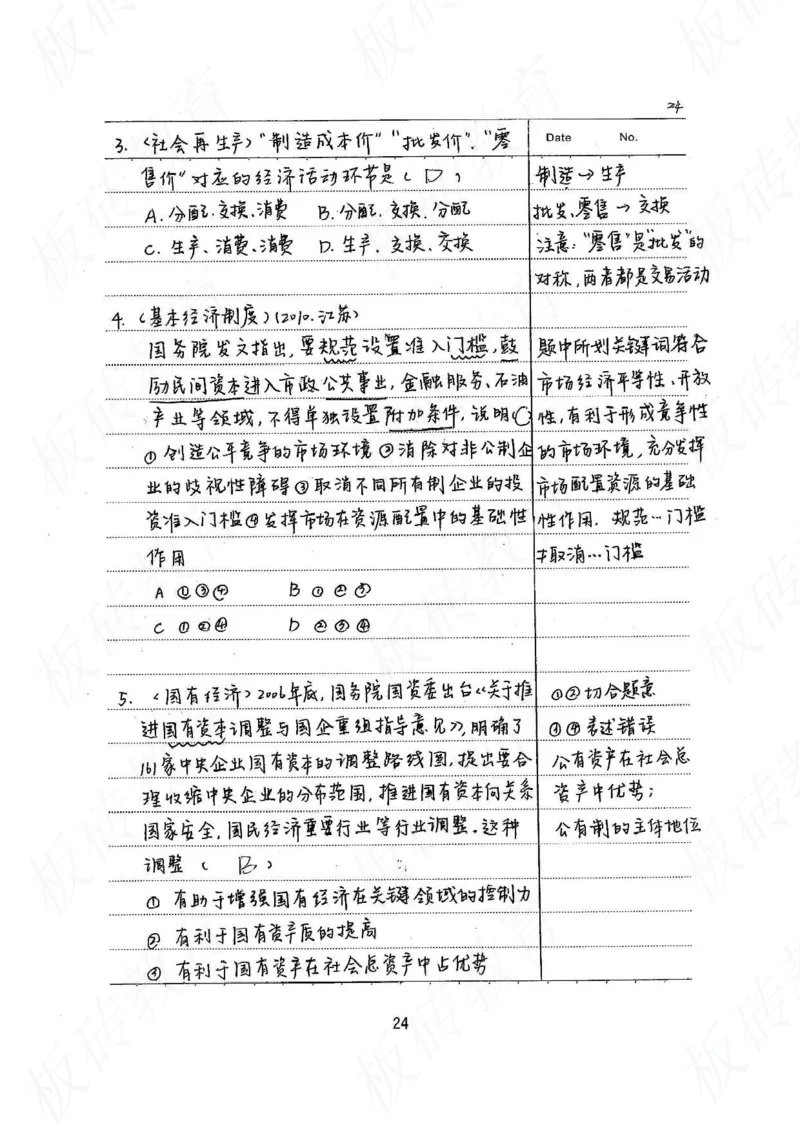 24
Date No.
3.〈社会再生产〉"制造成本价""批发价"、"零
售价"对应的经济活动环节是( D )
A.分配、交换、消费 B.分配、交换、分配
C.生产、消费、消费 D.生产、交换、交换
制造→生产
批发、零售→交换
注意:"零售"是"批发"的
对称,两者都是交易活动
4.〈基本经济制度〉(2010.江苏)
国务院发文指出,要规范设置准入门槛,鼓
励民间资本进入市政公共事业,金融服务、石油
产业等领域,不得单独设置附加条件,说明(C)
①创造公平竞争的市场环境②消除对非公制企
业的歧视性障碍③取消不同所有制企业的投
资准入门槛④发挥市场在资源配置中的基础性
作用
A ①③④ B ①②③
C ①②④ D ②③④
题中所划关键词符合
市场经济平等性、开放
性,有利于形成竞争性
的市场环境,充分发挥
市场配置资源的基础
性作用. 规范…门槛
≠取消…门槛
5.〈国有经济〉2006年底,国务院国资委出台《关于推
进国有资本调整与国企重组指导意见》,明确了
161家中央企业国有资本的调整路线图,提出要合
理收缩中央企业的分布范围,推进国有资本向关系
国家安全,国民经济重要行业等行业调整.这种
调整( B )
①有助于增强国有经济在关键领域的控制力
②有利于国有资产质的提高
③有利于国有资产在社会总资产中占优势
①②切合题意
③④表述错误
公有资产在社会总
资产中优势;
公有制的主体地位
24
板砖教育